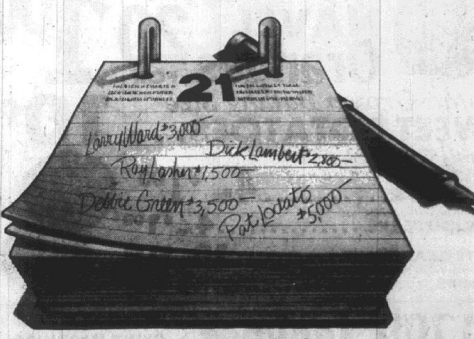 21
Larry Ward $3,000—
Dick Lambert $2,800—
Ray Lasher $1,500—
Debbie Green $3,500—
Pat Lodato
$5,000—